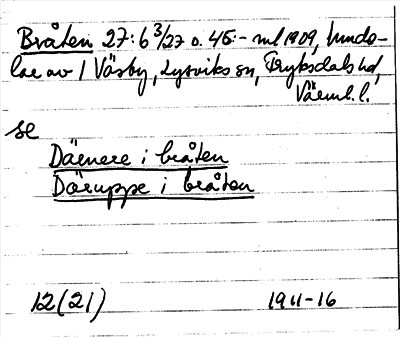 Bråten 27:6 3/27 o. 45:- ml 1909, Lunds-
lar av 1 Väsby, Lysviks sn, Fryksdals hd,
Värml. l.
se
Därnere i bråten
Däruppe i bråten
12(21) 1911-16